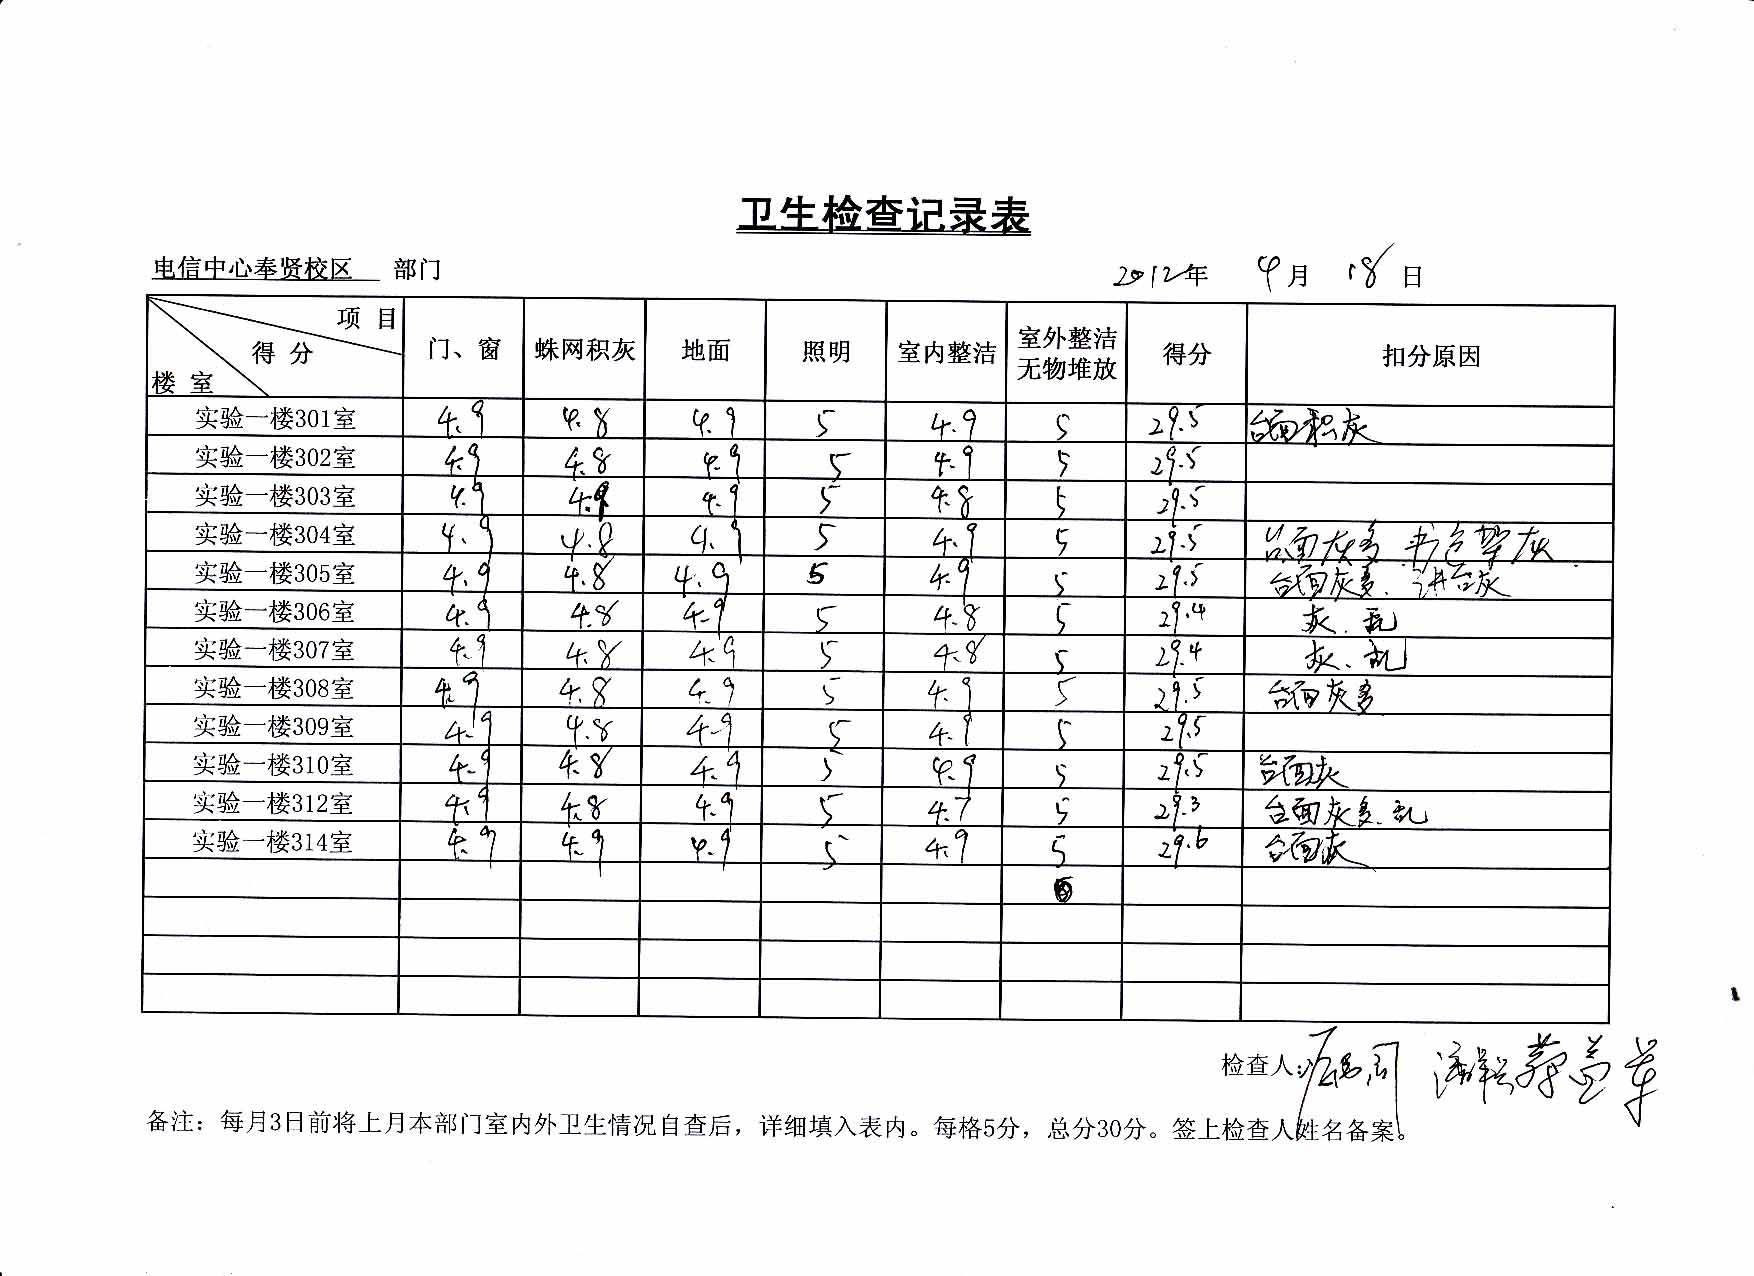 卫生检查记录表
电信中心奉贤校区 部门 2012年 4月 18日
项目 得分 楼室 门、窗 蛛网积灰 地面 照明 室内整洁 室外整洁无物堆放 得分 扣分原因
实验一楼301室 4.9 4.8 4.9 5 4.9 5 29.5 台面积灰
实验一楼302室 4.9 4.8 4.9 5 4.9 5 29.5
实验一楼303室 4.9 4.9 4.9 5 4.8 5 29.5
实验一楼304室 4.9 4.8 4.9 5 4.9 5 29.5 台面灰多 书包架灰
实验一楼305室 4.9 4.8 4.9 5 4.9 5 29.5 台面灰多、讲台灰
实验一楼306室 4.9 4.8 4.9 5 4.8 5 29.4 灰、乱
实验一楼307室 4.9 4.8 4.9 5 4.8 5 29.4 灰、乱
实验一楼308室 4.9 4.8 4.9 5 4.9 5 29.5 台面灰多
实验一楼309室 4.9 4.8 4.9 5 4.9 5 29.5
实验一楼310室 4.9 4.8 4.9 5 4.9 5 29.5 台面灰
实验一楼312室 4.9 4.8 4.9 5 4.7 5 29.3 台面灰多、乱
实验一楼314室 4.9 4.9 4.9 5 4.9 5 29.6 台面灰
检查人:
备注：每月3日前将上月本部门室内外卫生情况自查后，详细填入表内。每格5分，总分30分。签上检查人姓名备案。